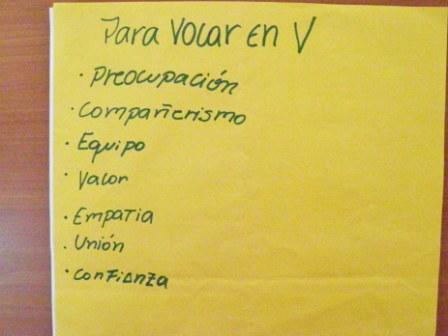 Para Volar en V
· Preocupación
· Compañerismo
· Equipo
· Valor
· Empatia
· Unión
· Confianza